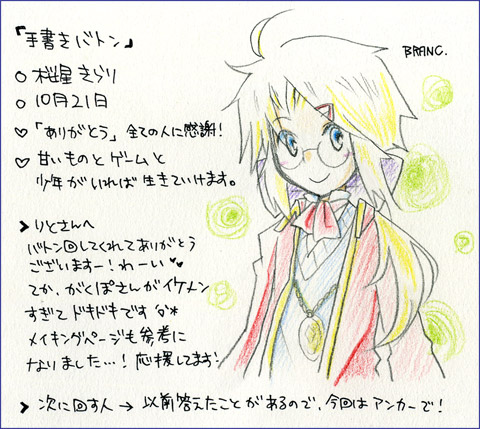 「手書きバトン」
BRANC.
○ 桜星きらり
○ 10月21日
♡「ありがとう」全ての人に感謝!
♡ 甘いものとゲームと
少年がいれば生きていけます。
> りとさんへ
バトン回してくれてありがとう
ございますー!わーい♥♥
てか、がくぽさんがイケメン
すぎてドキドキです
メイキングページも参考に
なりました…!応援してます!
> 次に回す人 → 以前答えたことがあるので、今回はアンカーで!